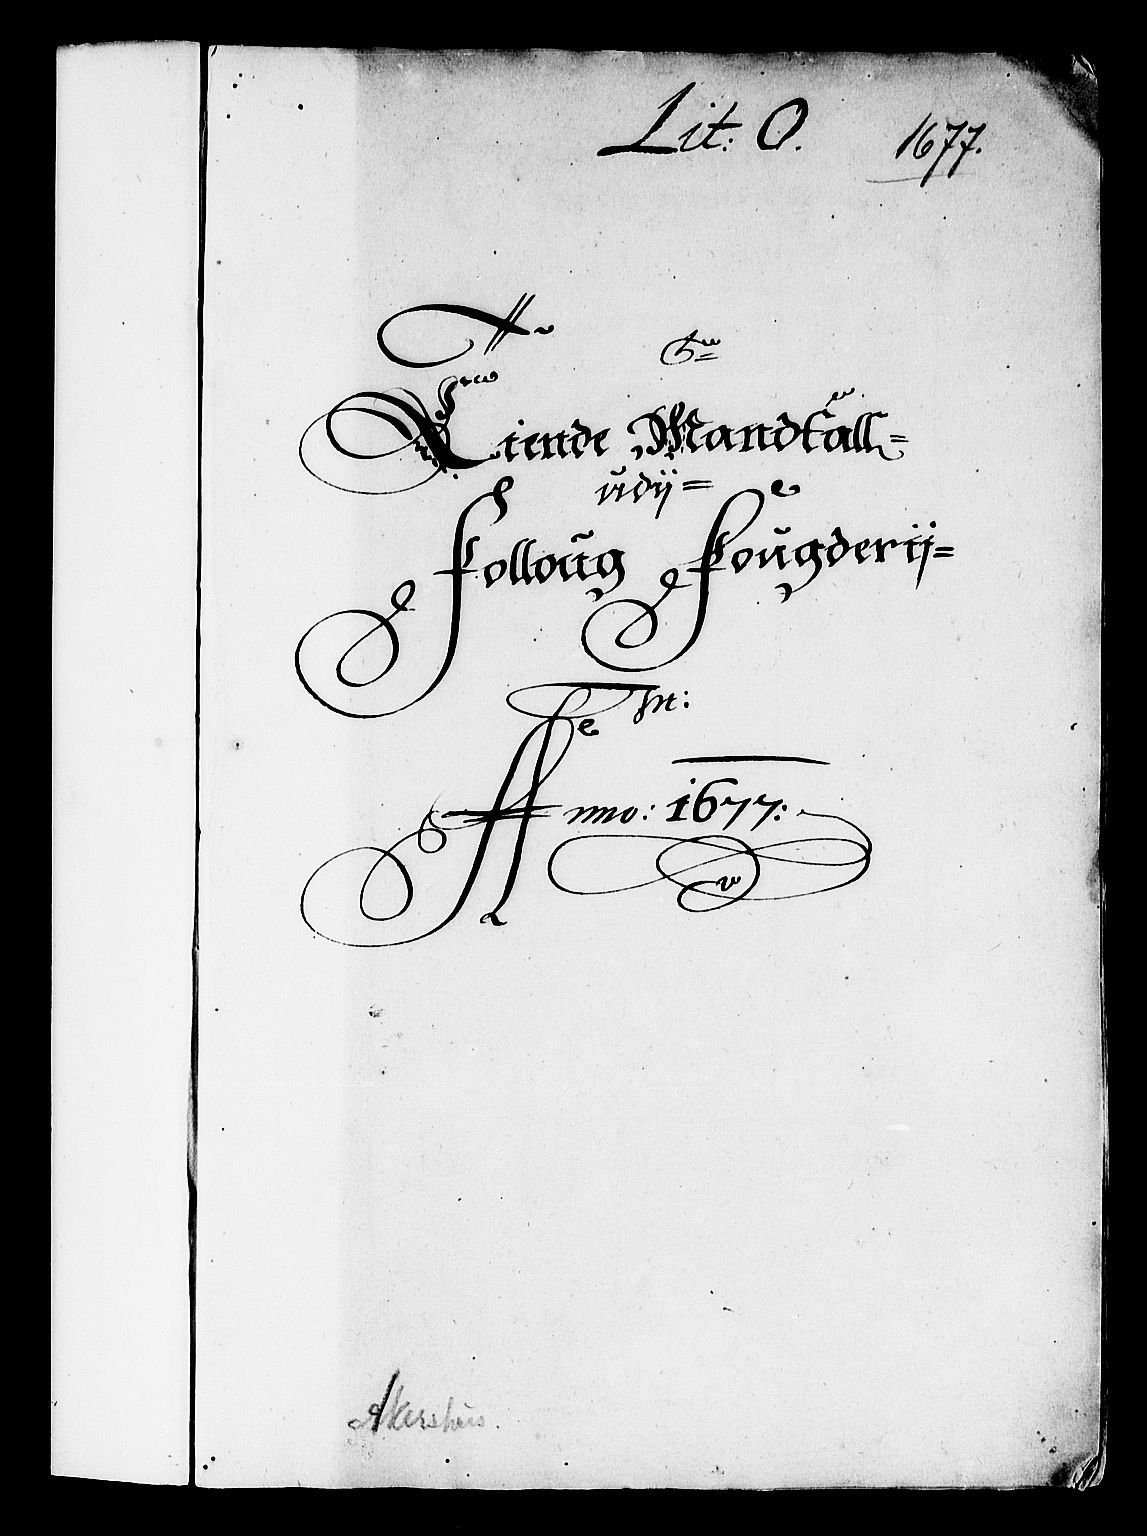 Lit: O. 1677.
Tiende Mandtall=
udij=
Folloug Fougderij=
Anno: 1677:
Akershus.